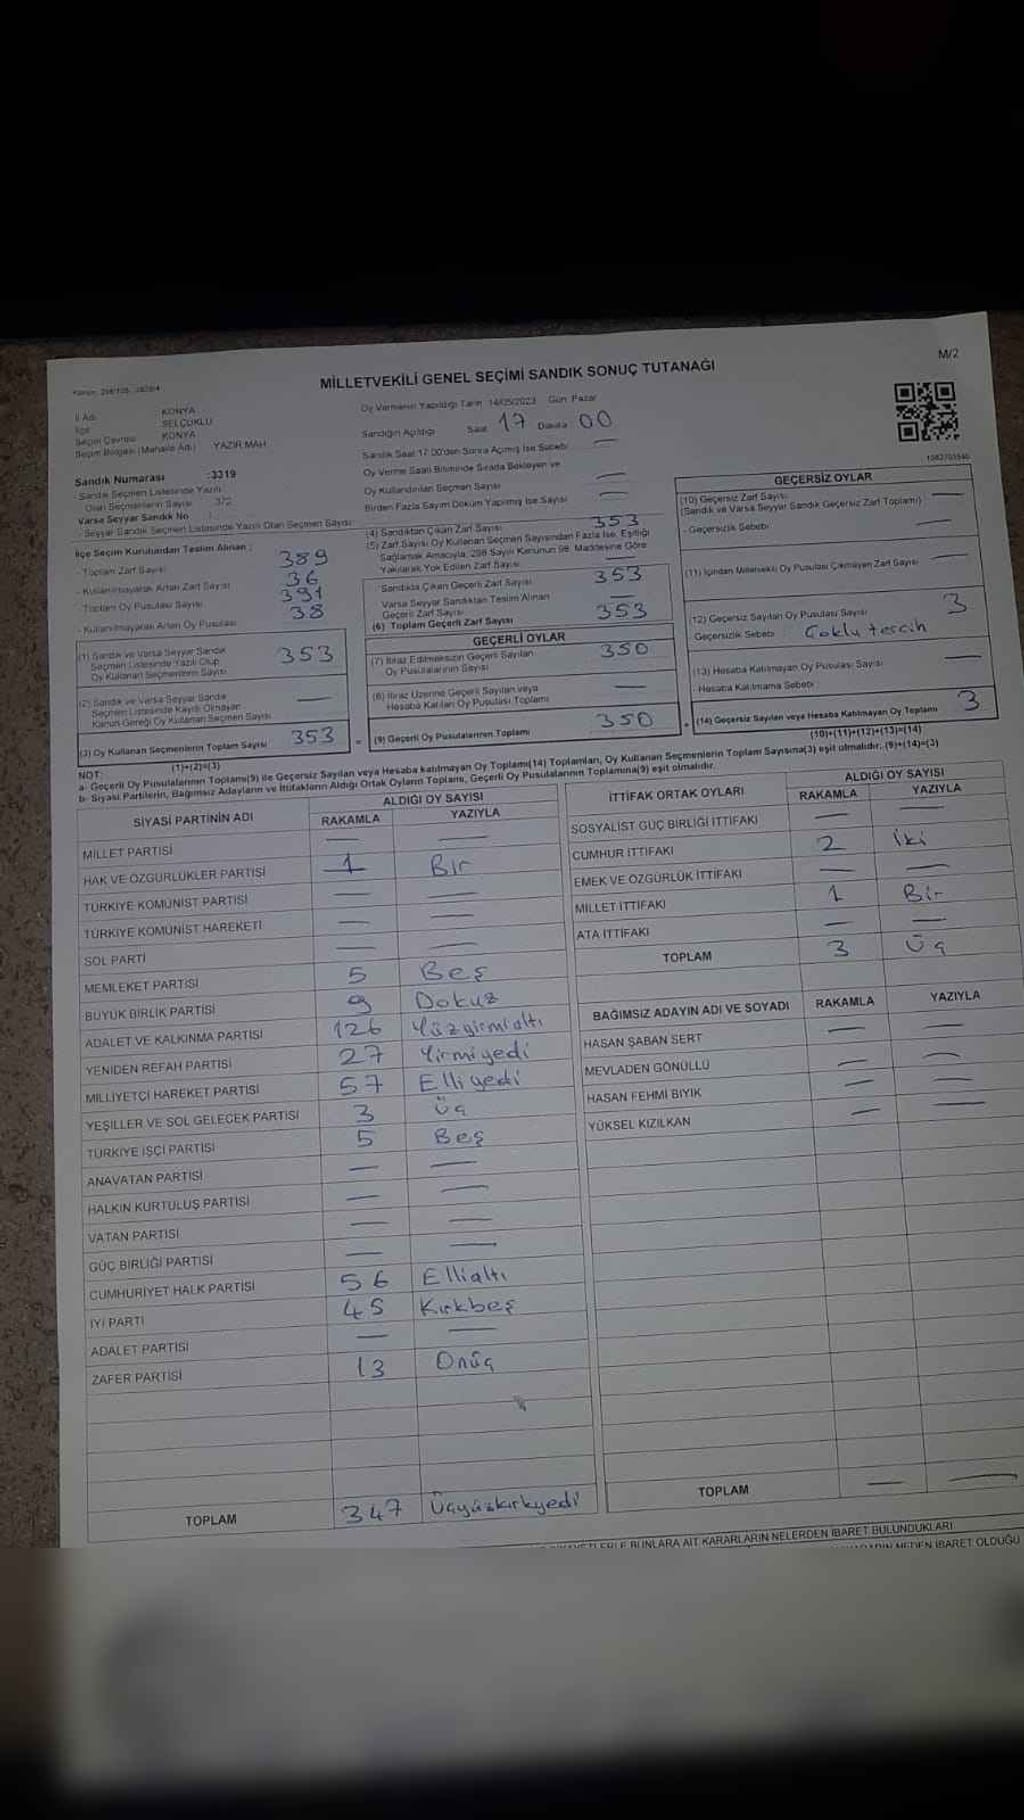 M/2
MİLLETVEKİLİ GENEL SEÇİMİ SANDIK SONUÇ TUTANAĞI
İl Adı : KONYA
İlçe : SELÇUKLU
Seçim Çevresi : KONYA
Seçim Bölgesi (Mahalle Adı) : YAZIR MAH
Sandık Numarası : 3319
- Sandık Seçmen Listesinde Yazılı
Olan Seçmenlerin Sayısı : 372
Varsa Seyyar Sandık No
- Seyyar Sandık Seçmen Listesinde Yazılı Olan Seçmen Sayısı
İlçe Seçim Kurulundan Teslim Alınan :
- Toplam Zarf Sayısı 389
- Kullanılmayarak Artan Zarf Sayısı 36
- Toplam Oy Pusulası Sayısı 391
- Kullanılmayarak Artan Oy Pusulası 38
(1) Sandık ve Varsa Seyyar Sandık
Seçmen Listesinde Yazılı Olup
Oy Kullanan Seçmenlerin Sayısı 353
(2) Sandık ve Varsa Seyyar Sandık
Seçmen Listesinde Kayıtlı Olmayan
Kanun Gereği Oy Kullanan Seçmen Sayısı —
(3) Oy Kullanan Seçmenlerin Toplam Sayısı 353
(1)+(2)=(3)
Oy Vermenin Yapıldığı Tarih 14/05/2023 Gün Pazar
Sandığın Açıldığı Saat 17 Dakika 00
Sandık Saat 17.00'den Sonra Açılmış İse Sebebi —
Oy Verme Saati Bitiminde Sırada Bekleyen ve
Oy Kullandırılan Seçmen Sayısı —
Birden Fazla Sayım Döküm Yapılmış İse Sayısı —
(4) Sandıktan Çıkan Zarf Sayısı 353
(5) Zarf Sayısı Oy Kullanan Seçmen Sayısından Fazla İse, Eşitliği
Sağlamak Amacıyla, 298 Sayılı Kanunun 98. Maddesine Göre
Yakılarak Yok Edilen Zarf Sayısı —
Sandıkta Çıkan Geçerli Zarf Sayısı 353
Varsa Seyyar Sandıktan Teslim Alınan
Geçerli Zarf Sayısı —
(6) Toplam Geçerli Zarf Sayısı 353
GEÇERLİ OYLAR
(7) İtiraz Edilmeksizin Geçerli Sayılan
Oy Pusulalarının Sayısı 350
(8) İtiraz Üzerine Geçerli Sayılan veya
Hesaba Katılan Oy Pusulası Toplamı —
(9) Geçerli Oy Pusulalarının Toplamı 350
1082703540
GEÇERSİZ OYLAR
(10) Geçersiz Zarf Sayısı
(Sandık ve Varsa Seyyar Sandık Geçersiz Zarf Toplamı) —
- Geçersizlik Sebebi —
(11) İçinden Milletvekili Oy Pusulası Çıkmayan Zarf Sayısı —
(12) Geçersiz Sayılan Oy Pusulası Sayısı 3
Geçersizlik Sebebi : Çoklu tercih
(13) Hesaba Katılmayan Oy Pusulası Sayısı —
- Hesaba Katılmama Sebebi :
(14) Geçersiz Sayılan veya Hesaba Katılmayan Oy Toplamı 3
(10)+(11)+(12)+(13)=(14)
NOT:
a- Geçerli Oy Pusulalarının Toplamı(9) ile Geçersiz Sayılan veya Hesaba katılmayan Oy Toplamı(14) Toplamları, Oy Kullanan Seçmenlerin Toplam Sayısına(3) eşit olmalıdır. (9)+(14)=(3)
b- Siyasi Partilerin, Bağımsız Adayların ve İttifakların Aldığı Ortak Oyların Toplamı, Geçerli Oy Pusulalarının Toplamına(9) eşit olmalıdır.
SİYASİ PARTİNİN ADI ALDIĞI OY SAYISI
RAKAMLA YAZIYLA
MİLLET PARTİSİ — —
HAK VE ÖZGÜRLÜKLER PARTİSİ 1 Bir
TÜRKİYE KOMÜNİST PARTİSİ — —
TÜRKİYE KOMÜNİST HAREKETİ — —
SOL PARTİ — —
MEMLEKET PARTİSİ 5 Beş
BÜYÜK BİRLİK PARTİSİ 9 Dokuz
ADALET VE KALKINMA PARTİSİ 126 Yüzyirmialtı
YENİDEN REFAH PARTİSİ 27 Yirmiyedi
MİLLİYETÇİ HAREKET PARTİSİ 57 Elliyedi
YEŞİLLER VE SOL GELECEK PARTİSİ 3 Üç
TÜRKİYE İŞÇİ PARTİSİ 5 Beş
ANAVATAN PARTİSİ — —
HALKIN KURTULUŞ PARTİSİ — —
VATAN PARTİSİ — —
GÜÇ BİRLİĞİ PARTİSİ — —
CUMHURİYET HALK PARTİSİ 56 Ellialtı
İYİ PARTİ 45 Kırkbeş
ADALET PARTİSİ — —
ZAFER PARTİSİ 13 Onüç
TOPLAM 347 Üçyüzkırkyedi
İTTİFAK ORTAK OYLARI ALDIĞI OY SAYISI
RAKAMLA YAZIYLA
SOSYALİST GÜÇ BİRLİĞİ İTTİFAKI — —
CUMHUR İTTİFAKI 2 İki
EMEK VE ÖZGÜRLÜK İTTİFAKI — —
MİLLET İTTİFAKI 1 Bir
ATA İTTİFAKI — —
TOPLAM 3 Üç
BAĞIMSIZ ADAYIN ADI VE SOYADI RAKAMLA YAZIYLA
HASAN ŞABAN SERT — —
MEVLADEN GÖNÜLLÜ — —
HASAN FEHMİ BIYIK — —
YÜKSEL KIZILKAN — —
TOPLAM — —
BUNLARA AİT KARARLARIN NELERDEN İBARET BULUNDUKLARI
NEDEN İBARET OLDUĞU